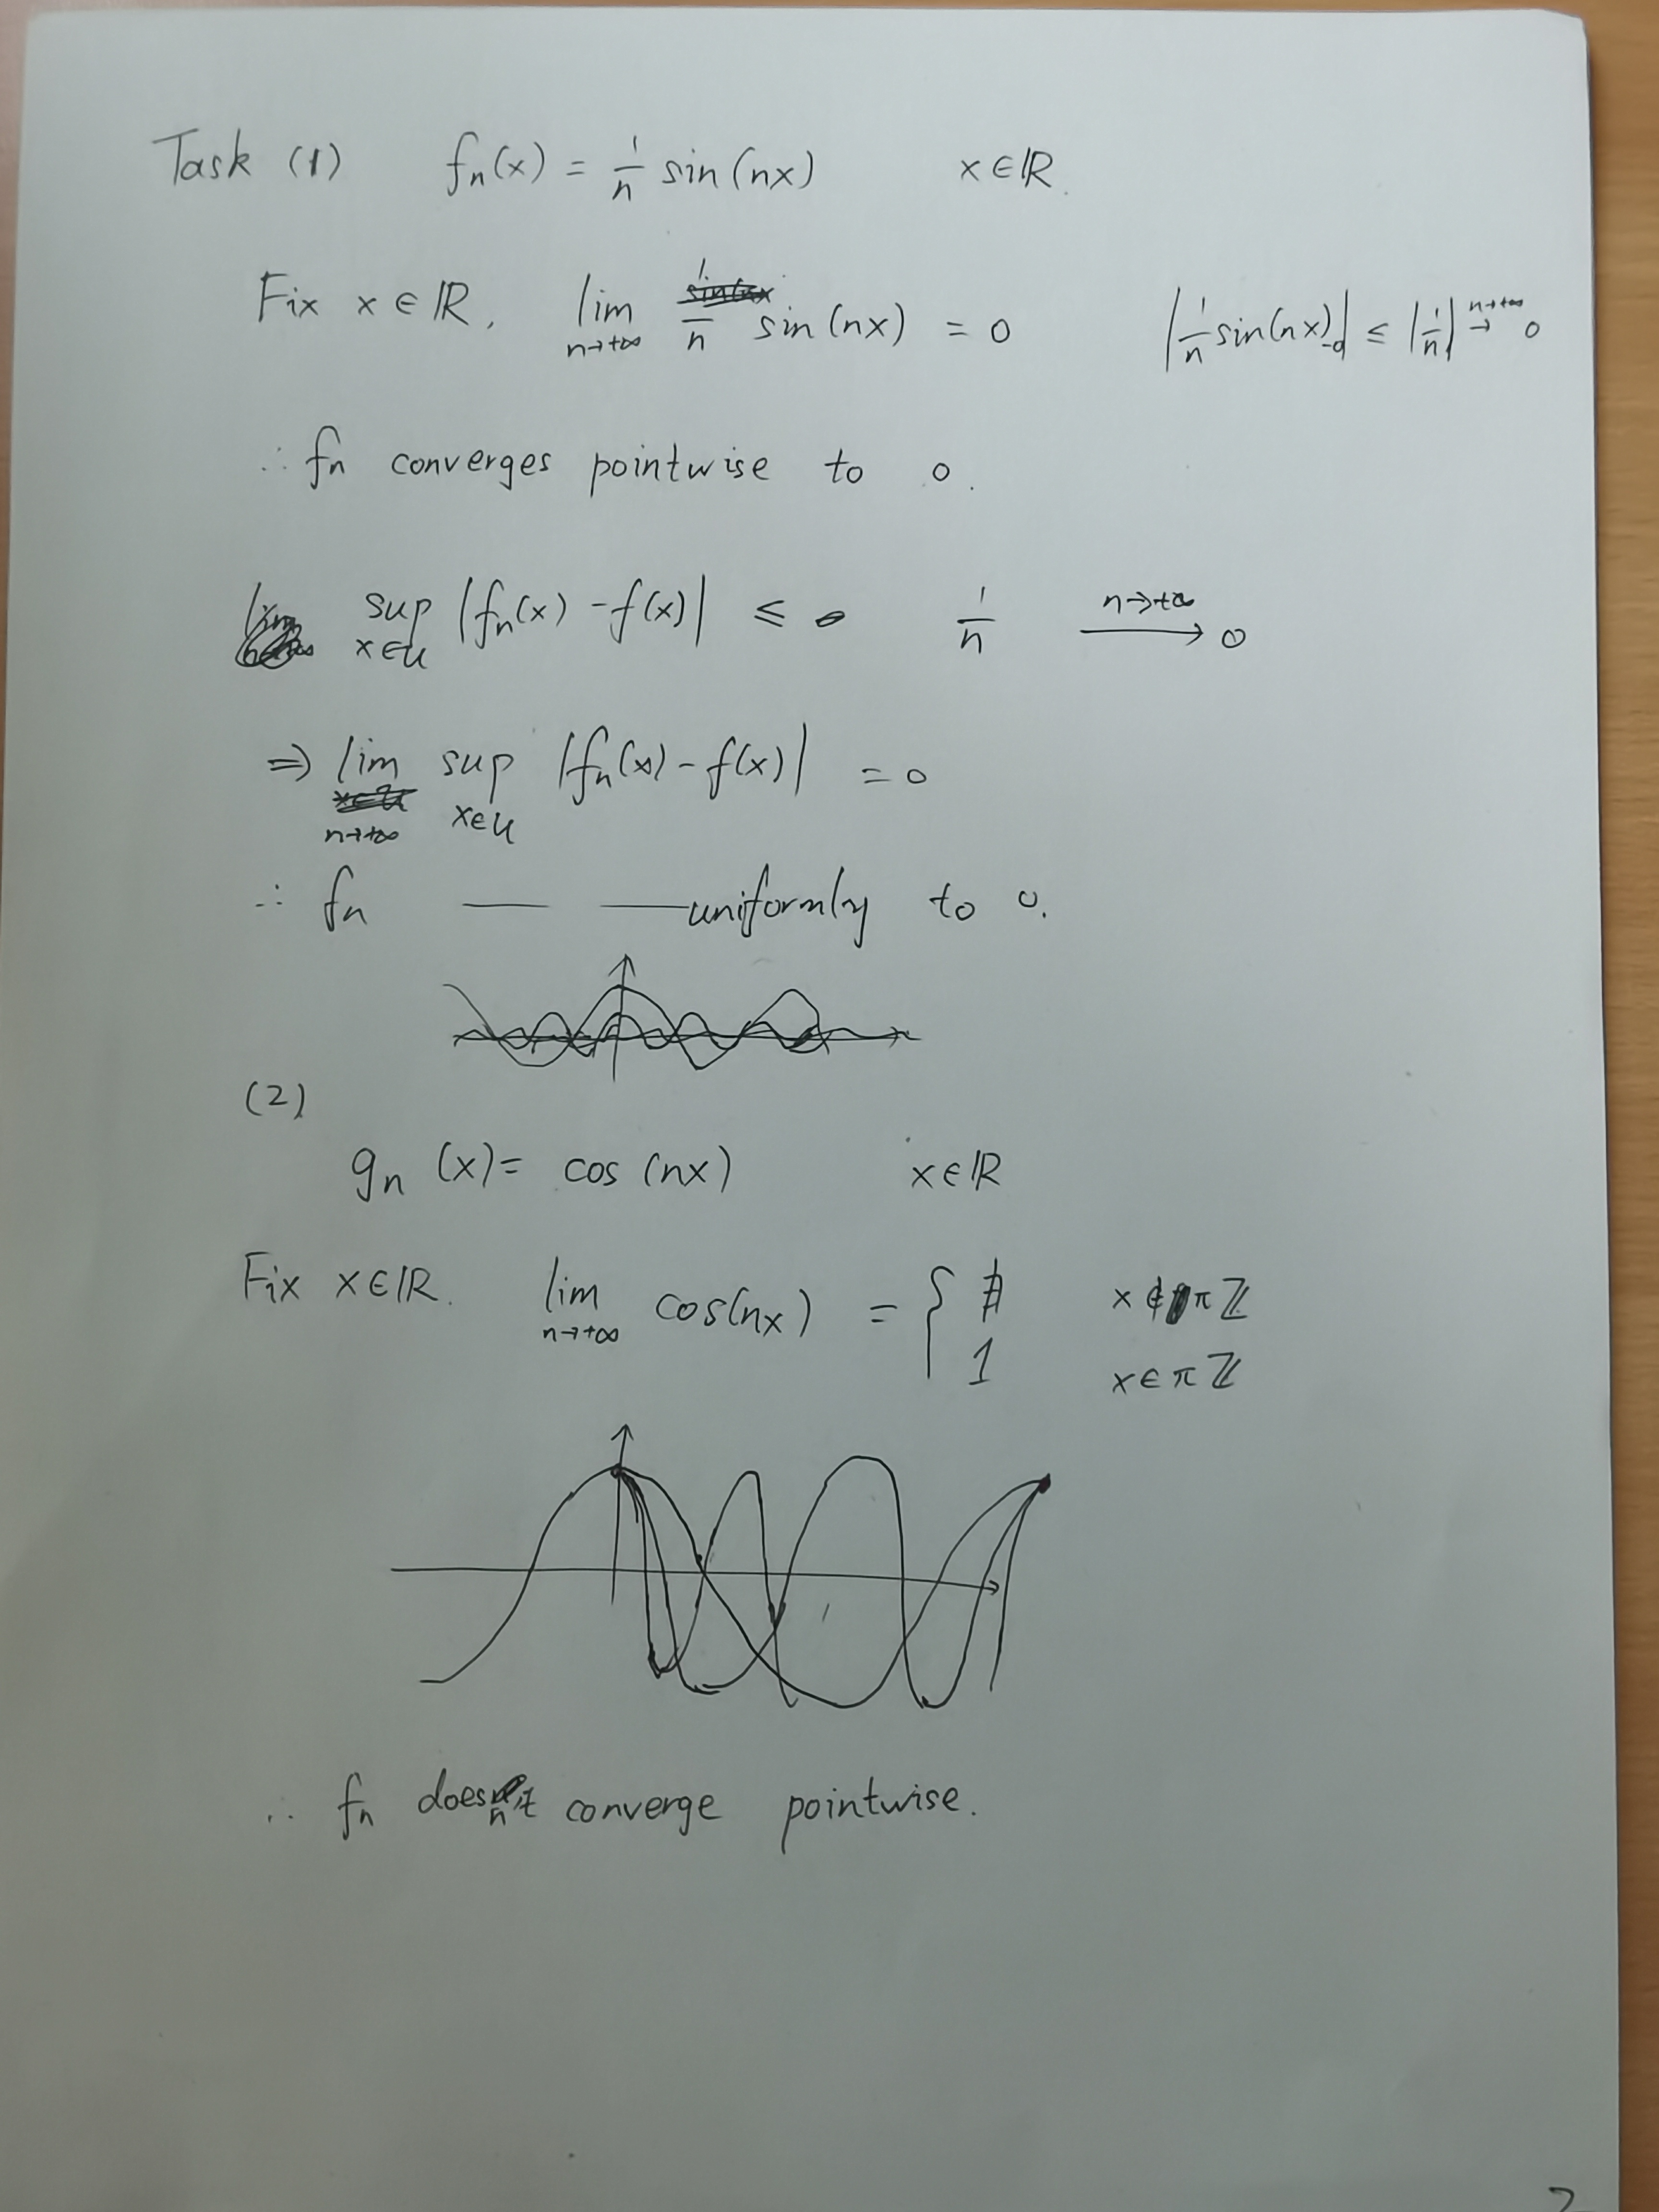 Task (1) fₙ(x) = 1/n sin(nx) x ∈ ℝ.
Fix x ∈ ℝ, lim n→+∞ 1/n sin(nx) = 0 |1/n sin(nx) -0| ≤ |1/n| n→+∞ → 0
∴ fₙ converges pointwise to 0.
sup x∈U |fₙ(x) - f(x)| ≤ 1/n n→+∞ → 0
⇒ lim n→+∞ sup x∈U |fₙ(x) - f(x)| = 0
∴ fₙ — — uniformly to 0.
(2)
gₙ(x) = cos(nx) x ∈ ℝ
Fix x ∈ ℝ. lim n→+∞ cos(nx) = { ∄ x ∉ πℤ
1 x ∈ πℤ
∴ fₙ doesn't converge pointwise.